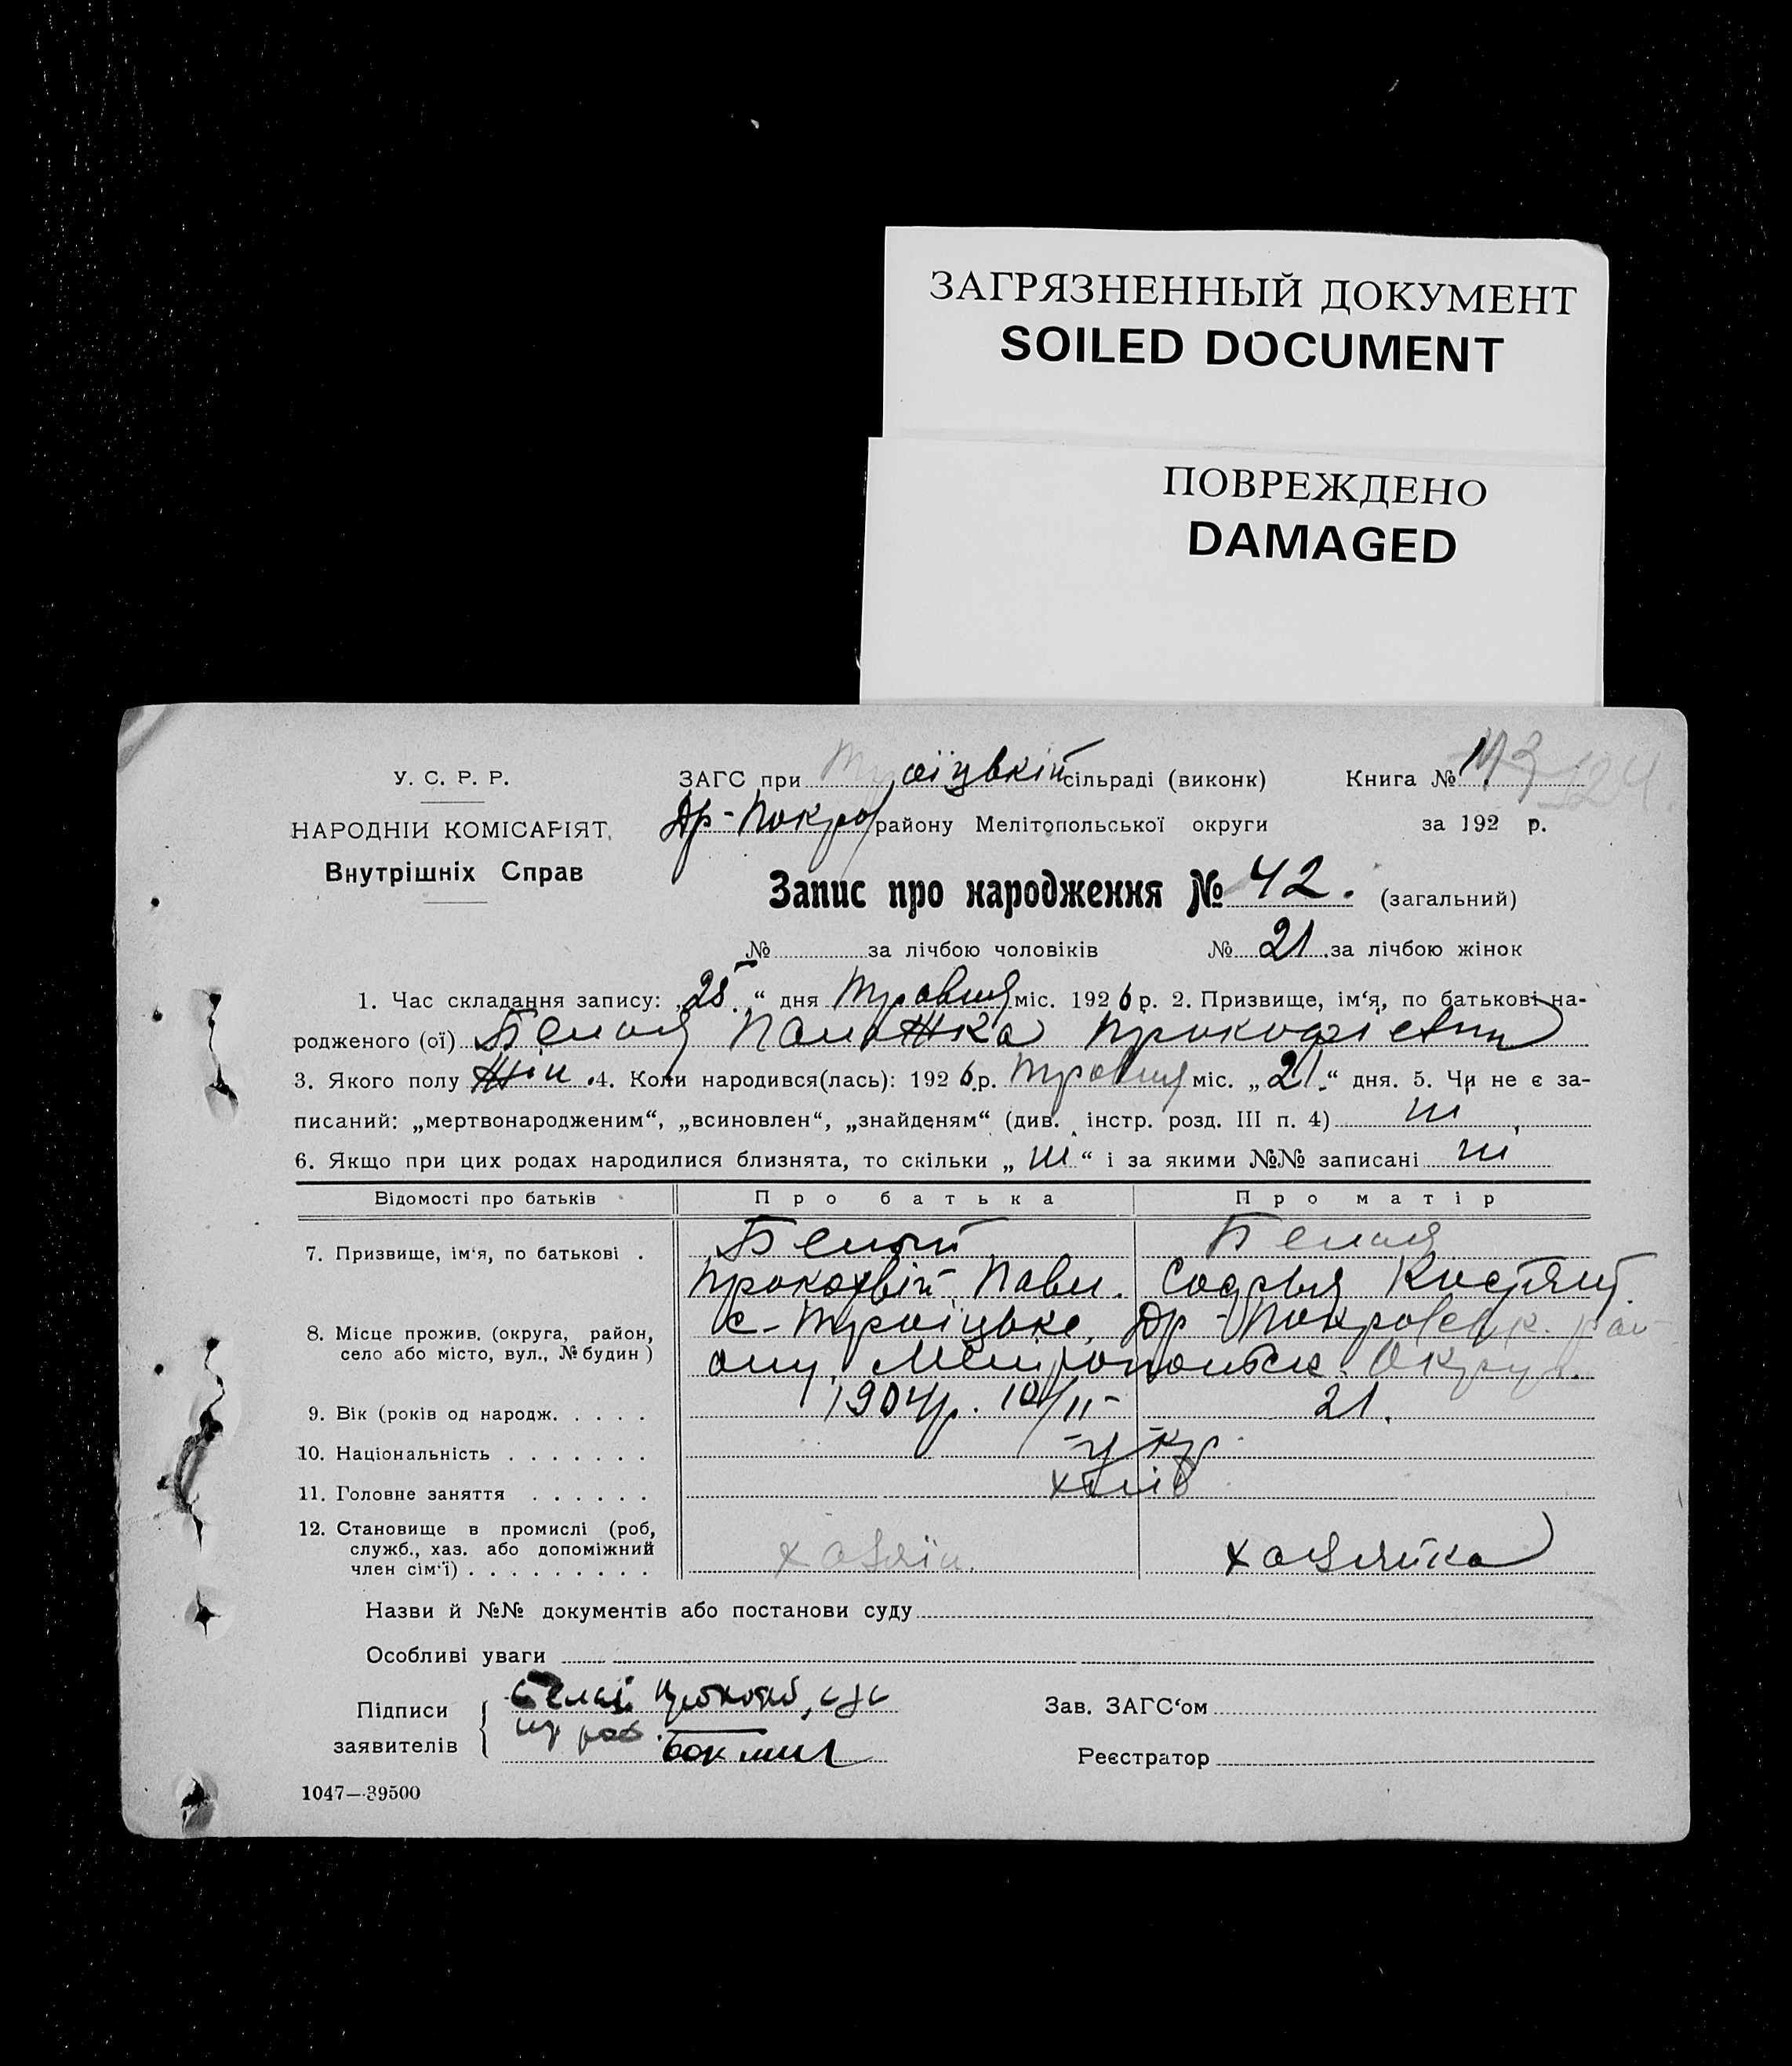 ЗАГРЯЗНЕННЫЙ ДОКУМЕНТ
SOILED DOCUMENT
ПОВРЕЖДЕНО
DAMAGED
У. С. Р. Р.
НАРОДНІЙ КОМІСАРІЯТ
Внутрішніх Справ
ЗАГС при Троїцькій сільраді (виконк)
Книга №
Др-Покро району Мелітопольської округи
за 192 р.
Запис про народження № 42. (загальний)
№ за лічбою чоловіків № 21 за лічбою жінок
1. Час складання запису: „25“ дня Травня міс. 1926 р. 2. Призвище, ім‘я, по батькові на-
родженого (ої) Белая Палажка Прокофіевна
3. Якого полу Жін. 4. Коли народився(лась): 1926 р. Травня міс. „21“ дня. 5. Чи не є за-
писаний: „мертвонародженим“, „всиновлен“, „знайденям“ (див. інстр. розд. III п. 4) ні
6. Якщо при цих родах народилися близнята, то скільки „ні“ і за якими №№ записані ні
Відомості про батьків Про батька Про матір
7. Призвище, ім‘я, по батькові . Белый Белая
Прокофій Павл. Софья
8. Місце прожив. (округа, район, село або місто, вул., № будин) с-Троїцьке, Др-Покровськ. рай-
ону, Мелітопольск. Округи.
9. Вік (років од народж. . . . . 1904 р. 10/II- 21.
10. Національність . . . . . . . укр
11. Головне заняття . . . . . . хліб
12. Становище в промислі (роб, служб., хаз. або допоміжний член сім‘ї) . . . . . . . . . хазяїн. хазяйка
Назви й №№ документів або постанови суду
Особливі уваги
Підписи
заявителів
Зав. ЗАГС‘ом
Реєстратор
1047—39500